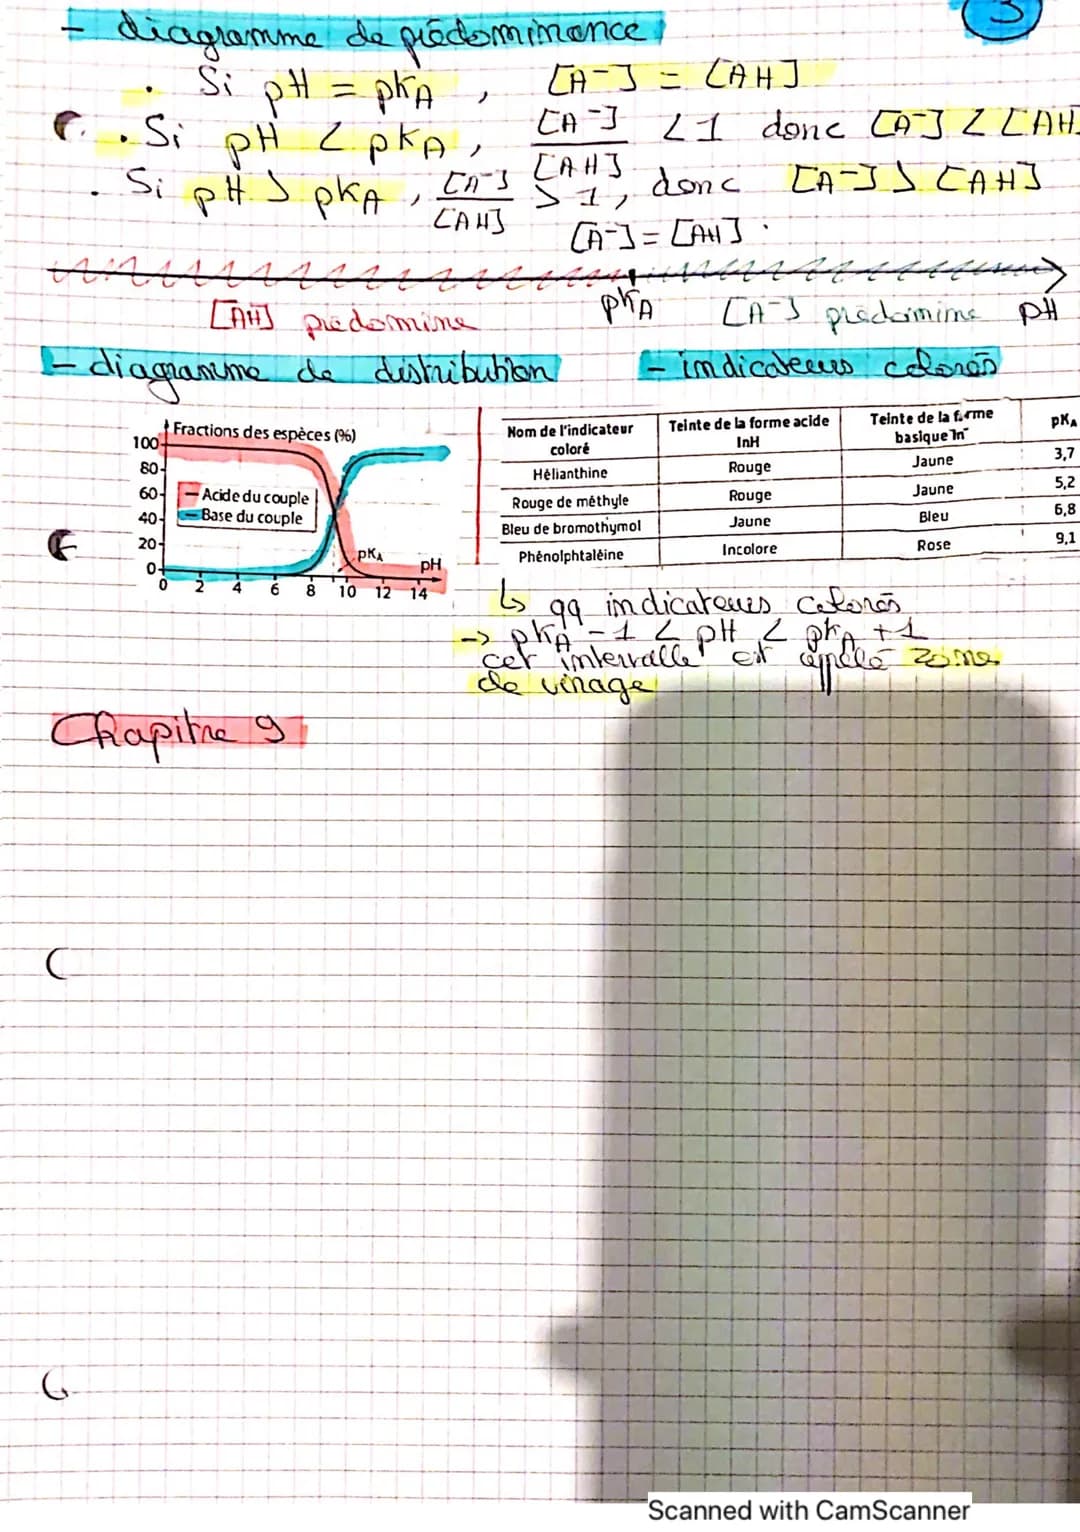 3
- diagramme de prédominance
. Si pH = pKA , [A-] = [AH]
. Si pH < pKA , [A-]/[AH] < 1 donc [A-] < [AH
. Si pH > pKA , [A-]/[AH] > 1, donc [A-] > [AH]
[A-] = [AH]
pKA
[AH] prédomine [A-] prédomine pH
- diagramme de distribution
Fractions des espèces (%)
100
80
60
40
20
0
Acide du couple
Base du couple
pKA
pH
0 2 4 6 8 10 12 14
- indicateurs colorés
Nom de l'indicateur coloré Teinte de la forme acide InH Teinte de la forme basique In- pKA
Hélianthine Rouge Jaune 3,7
Rouge de méthyle Rouge Jaune 5,2
Bleu de bromothymol Jaune Bleu 6,8
Phénolphtaléine Incolore Rose 9,1
↳ qq indicateurs colorés
-> pKA - 1 < pH < pKA + 1
cet intervalle est appelé zone
de virage
Chapitre 9
Scanned with CamScanner